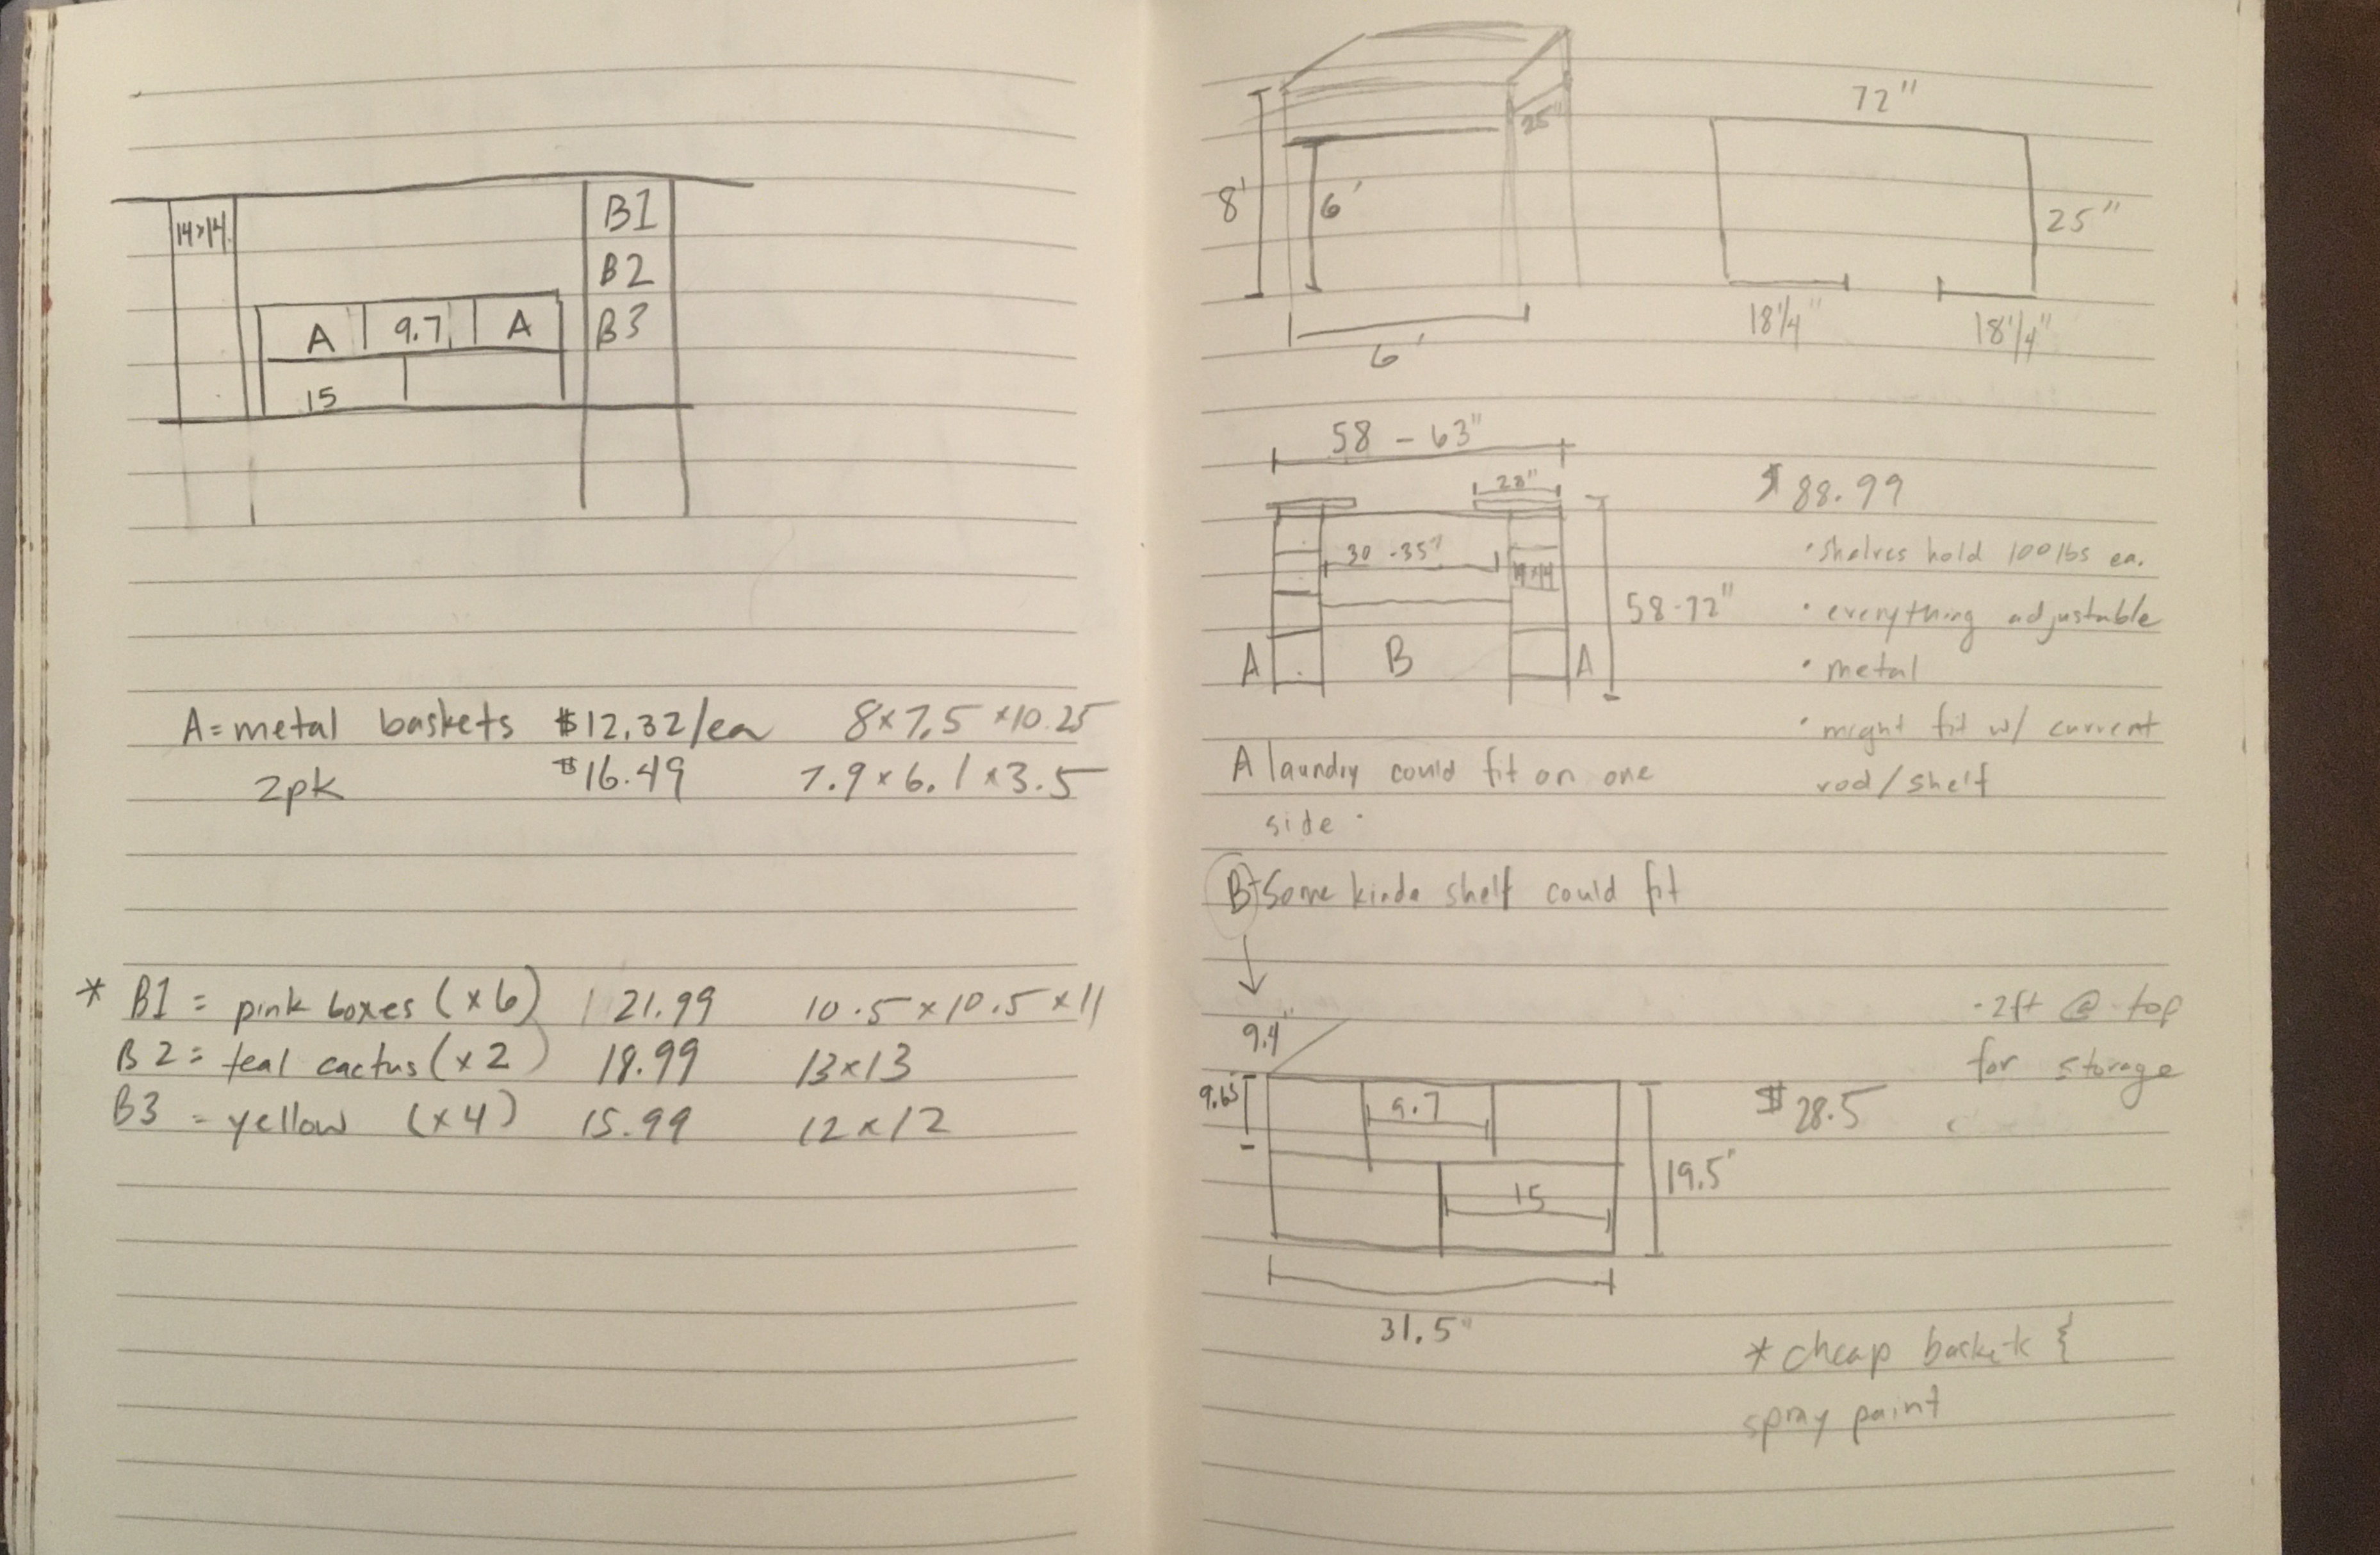 14x14
B1
B2
B3
A 9.7 A
15
A = metal baskets $12.32/ea 8x7.5x10.25
2pk $16.49 7.9x6.1x3.5
* B1 = pink boxes (x6) 21.99 10.5x10.5x11
B2 = teal cactus (x2) 18.99 13x13
B3 = yellow (x4) 15.99 12x12
25"
8'
6'
6'
72"
25"
18 1/4" 18 1/4"
58 - 63"
28"
30-35"
14x14
58-72"
A B A
$88.99
• shelves hold 100lbs ea.
• everything adjustable
• metal
• might fit w/ current
rod/shelf
A laundry could fit on one
side.
B - Some kinda shelf could fit
- 2ft @ top
for storage
9.4"
9.65
9.7
15
19.5"
31.5"
$28.5
* cheap baskets &
spray paint